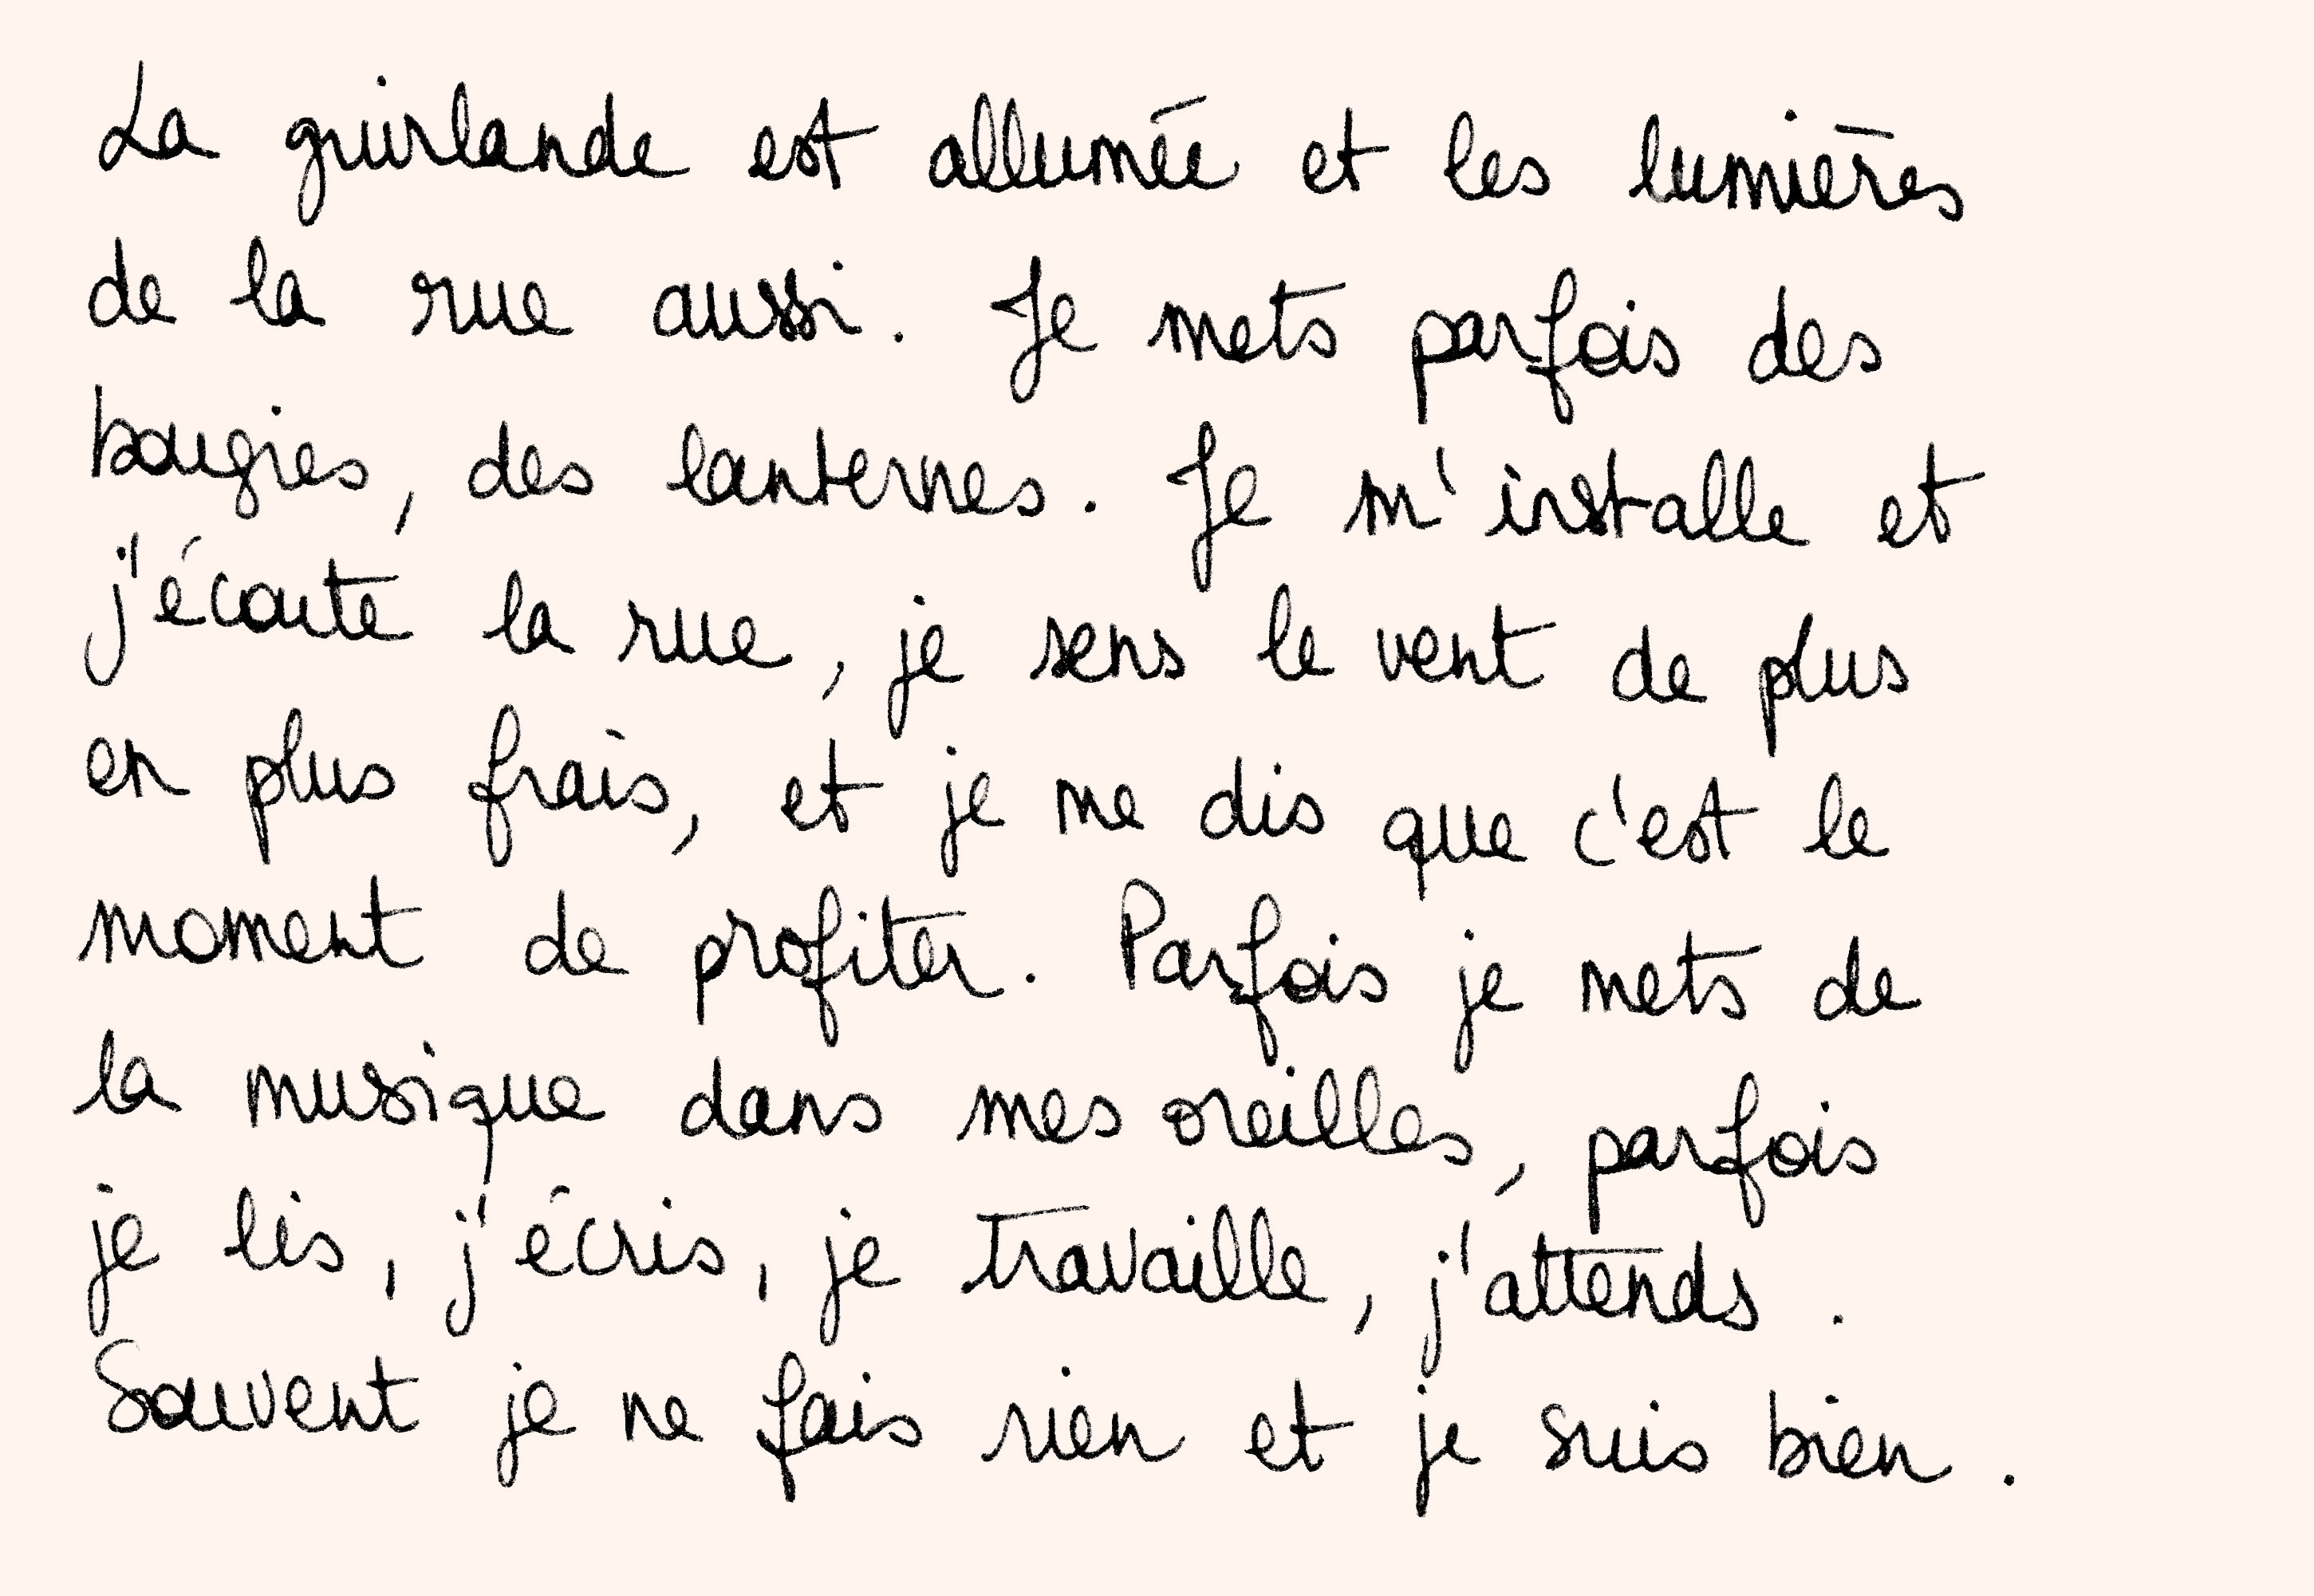 La guirlande est allumée et les lumières
de la rue aussi. Je mets parfois des
bougies, des lanternes. Je m'installe et
j'écoute la rue, je sens le vent de plus
en plus frais, et je me dis que c'est le
moment de profiter. Parfois je mets de
la musique dans mes oreilles, parfois
je lis, j'écris, je travaille, j'attends.
Souvent je ne fais rien et je suis bien.